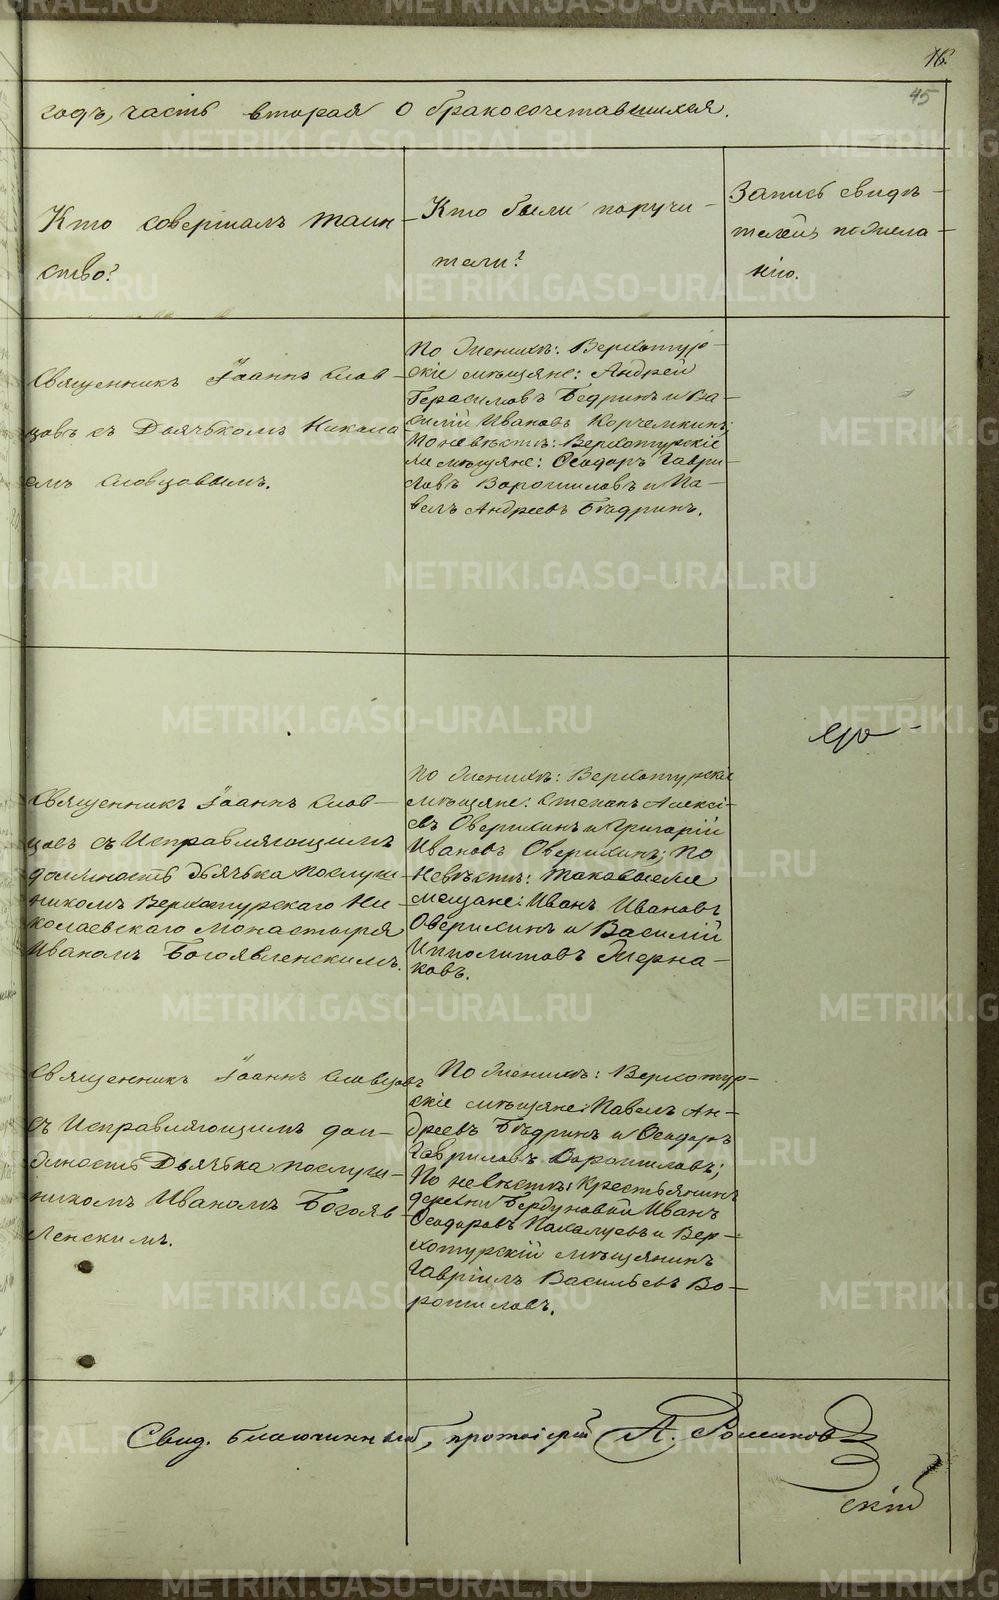 16.
45
годъ, часть вторая о бракосочетавшихся.
Кто совершалъ таин-
ство?
Кто были поручи-
тели?
Запись свидѣ-
телей по жела-
нію.
Священникъ Іоаннъ Слов-
цовъ съ Дьячькомъ Никола
емъ Словцовымъ.
По женихѣ: Верхотур-
скіе мѣщяне: Андрей
Герасимовъ Бедринъ и Ва-
силій Ивановъ Корчемкинъ;
По невѣстѣ: Верхотурскіе
мѣщяне: Ѳеодоръ Гаври-
ловъ Ворошиловъ и Па-
велъ Андреевъ Бѣдринъ.
Священникъ Іоаннъ Слов-
цовъ съ Исправляющимъ
должность Дьячька послуш-
никомъ Верхотурскаго Ни-
колаевскаго монастыря
Иваномъ Богоявленскимъ.
По женихѣ: Верхотурскіе
мѣщяне: Степанъ Алексѣ-
евъ Оверихинъ и Григорій
Ивановъ Оверихинъ; По
невѣстѣ: таковые же
мещане: Иванъ Ивановъ
Оверихинъ и Василій
Ипполитовъ Жерна-
ковъ.
Священникъ Іоаннъ Словцовъ
съ Исправляющимъ дол-
жность Дьячька послуш-
никомъ Иваномъ Богояв-
ленскимъ.
По женихѣ: Верхотур-
скіе мѣщяне: Павелъ Ан-
дреевъ Бѣдринъ и Ѳеодоръ
Гавриловъ Ворошиловъ;
По невѣстѣ: Крестьянинъ
деревни Бердуновой Иванъ
Ѳеодоровъ Пахалуевъ и Вер-
хотурскій мѣщянинъ
Гавріилъ Васильевъ Во-
рошиловъ.
Свид. благочинный, протоіерей А. Романов
скій
METRIKI.GASO-URAL.RU